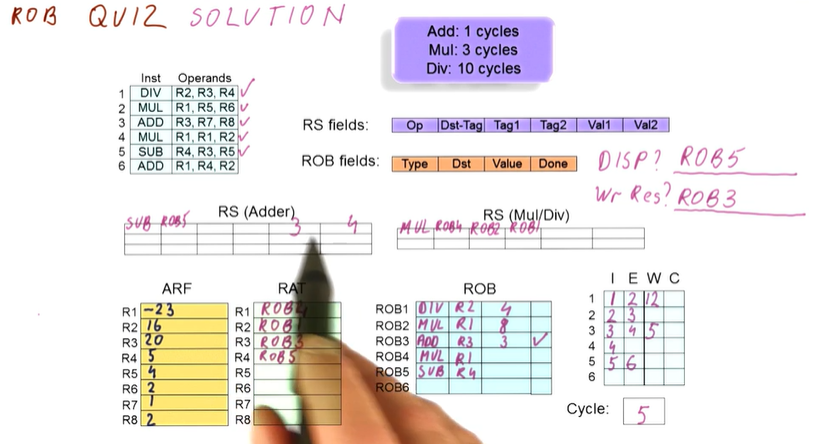 ROB QUIZ SOLUTION
Add: 1 cycles
Mul: 3 cycles
Div: 10 cycles
Inst Operands
1 DIV R2, R3, R4 ✓
2 MUL R1, R5, R6 ✓
3 ADD R3, R7, R8 ✓
4 MUL R1, R1, R2 ✓
5 SUB R4, R3, R5 ✓
6 ADD R1, R4, R2
RS fields: Op Dst-Tag Tag1 Tag2 Val1 Val2
ROB fields: Type Dst Value Done
DISP? ROB5
Wr Res? ROB3
RS (Adder)
SUB ROB5 3 4
RS (Mul/Div)
MUL ROB4 ROB2 ROB1
ARF
R1 -23
R2 16
R3 20
R4 5
R5 4
R6 2
R7 1
R8 2
RAT
R1 ROB4
R2 ROB1
R3 ROB3
R4 ROB5
R5
R6
R7
R8
ROB
ROB1 DIV R2 4
ROB2 MUL R1 8
ROB3 ADD R3 3 ✓
ROB4 MUL R1
ROB5 SUB R4
ROB6
I E W C
1 1 2 12
2 2 3
3 3 4 5
4 4
5 5 6
6
Cycle: 5